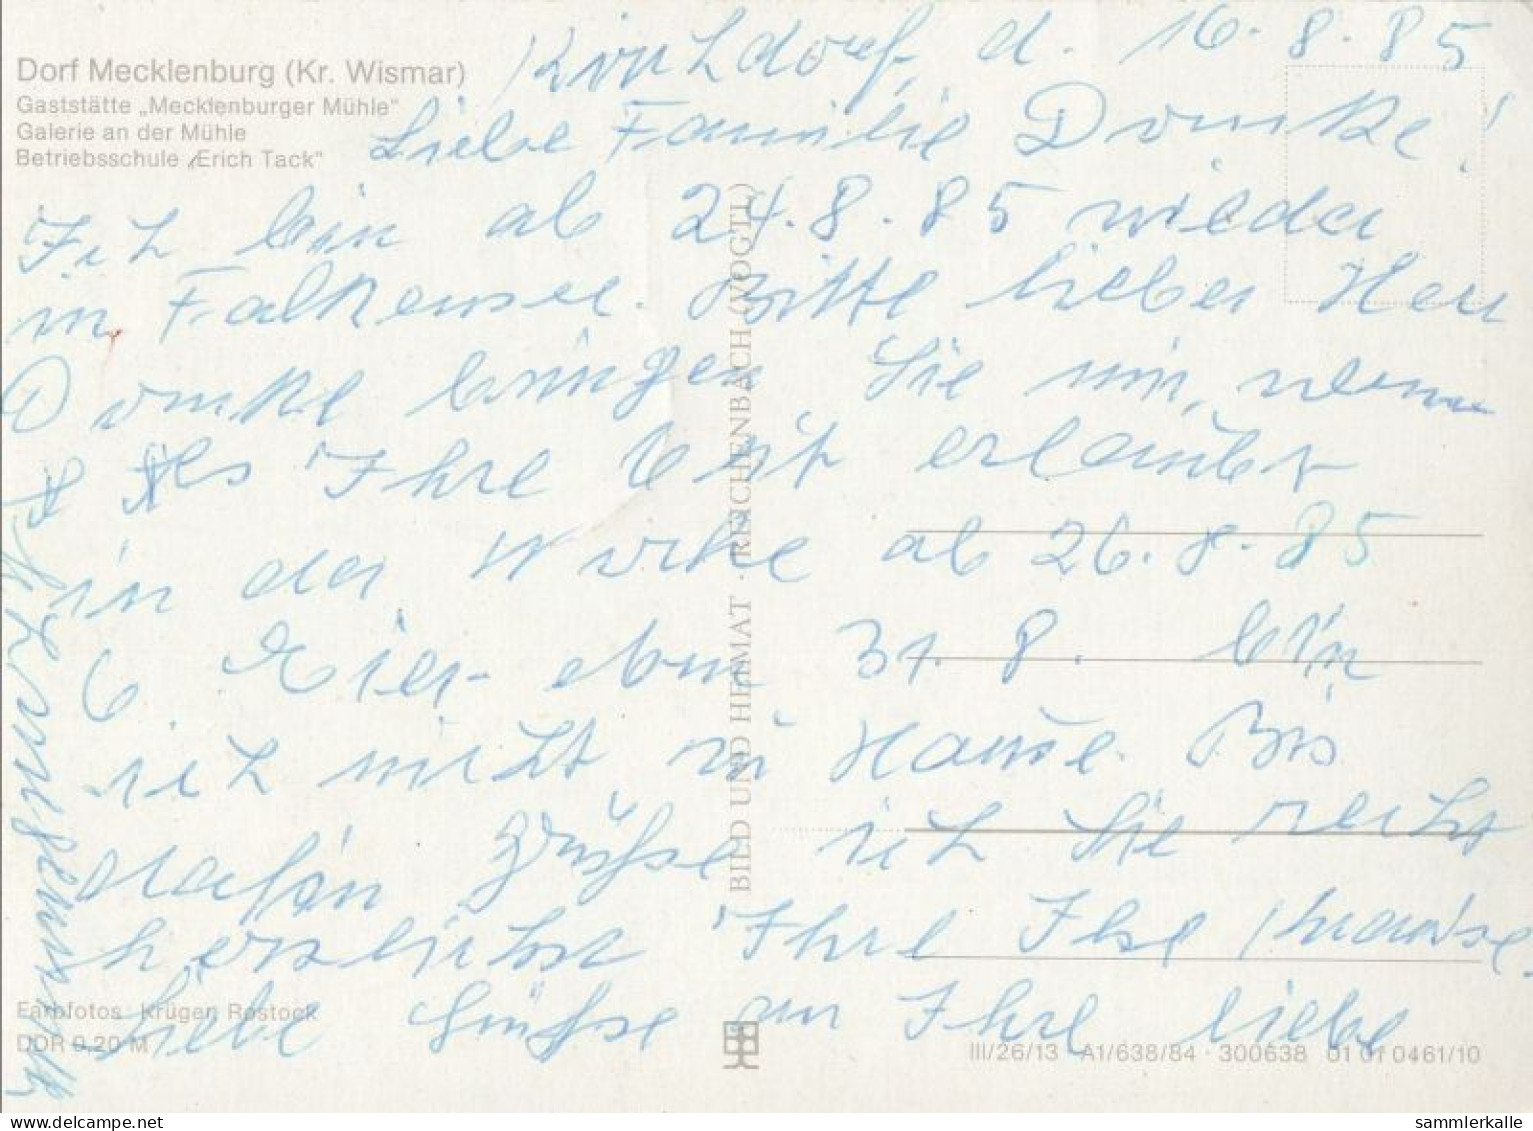 Dorf Mecklenburg (Kr. Wismar)
Gaststätte „Mecklenburger Mühle"
Galerie an der Mühle
Betriebsschule „Erich Tack"
Kirchdorf, d. 16.8.85
Liebe Familie Domke!
Ich bin ab 24.8.85 wieder
in Falkensee. Bitte lieber Herr
Domke bringen Sie mir, wenn
es Ihre Zeit erlaubt
in der Woche ab 26.8.85
6 Eier - ab 31.8. bin
ich nicht zu Hause. Bis
dahin grüßse ich Sie recht
herzlichst Ihre Ilse
Liebe Grüßse an Ihre liebe
BILD UND HEIMAT · REICHENBACH (VOGTL)
Farbfotos: Krüger, Rostock
DDR 0,20 M
III/26/13 A1/638/84 · 300638 01 01 0461/10
sammlerkalle
delcampe.net